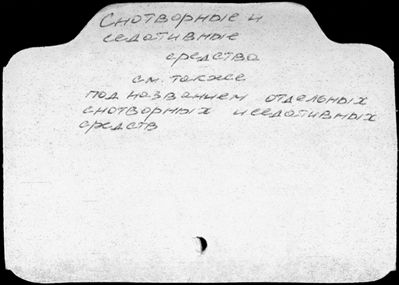 Снотворные и
седативные
средства
см. также
под названием отдельных
снотворных и седативных
средств